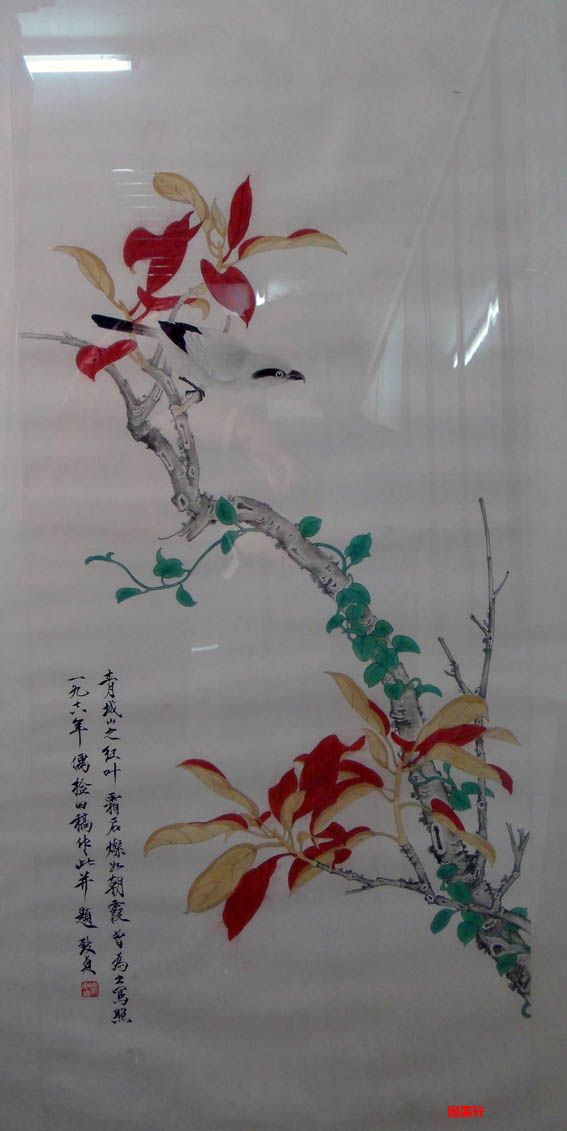 青城山之红叶霜后燦如朝霞曾為之写照
一九六六年偶检旧稿作此并题致贞
国墨轩